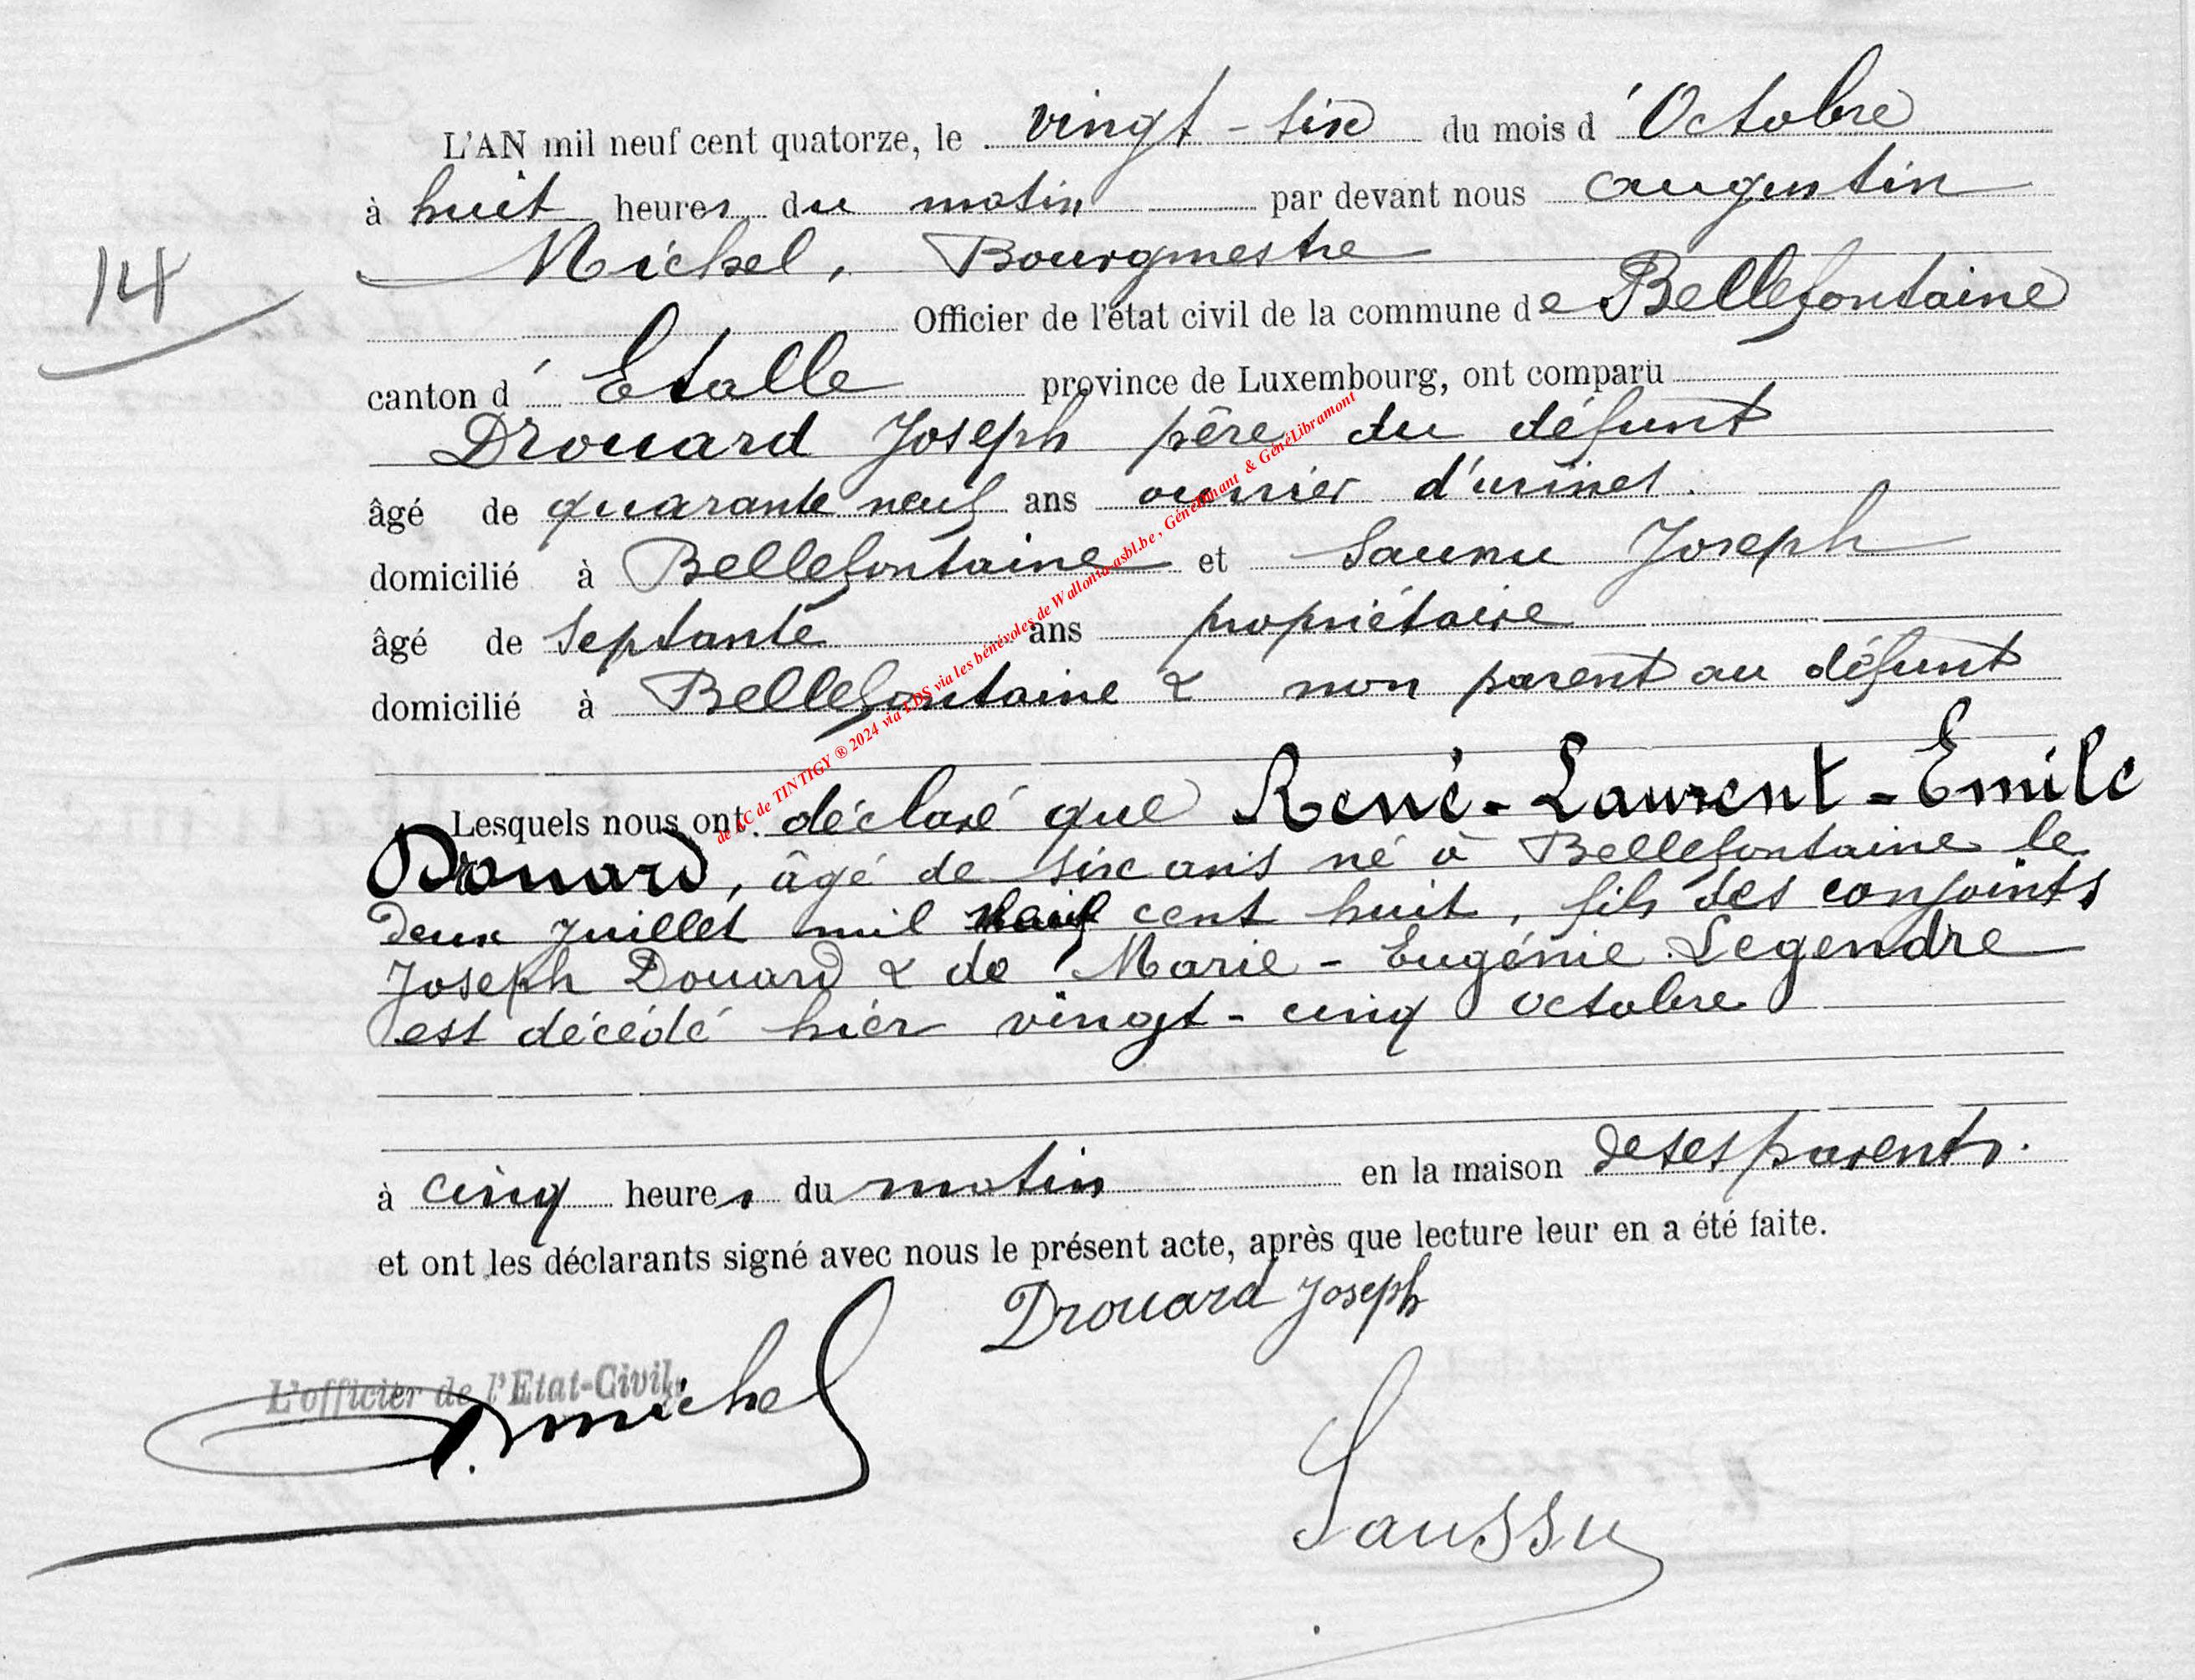 L'AN mil neuf cent quatorze, le vingt-six du mois d'Octobre
à huit heures du matin par devant nous Augustin
14
Michel, Bourgmestre
Officier de l'état civil de la commune de Bellefontaine
canton d'Etalle province de Luxembourg, ont comparu
Drouard Joseph père du défunt
âgé de quarante neuf ans ouvrier d'usines.
domicilié à Bellefontaine et Saussu Joseph
âgé de septante ans propriétaire
domicilié à Bellefontaine & non parent au défunt
de AC de TINTIGY ® 2024 via LDS via les bénévoles de Wallonia-asbl.be, GénéDinant & GénéLibramont
Lesquels nous ont déclaré que René-Laurent-Emile
Drouard, âgé de six ans né à Bellefontaine le
deux Juillet mil neuf cent huit, fils des conjoints
Joseph Douard & de Marie-Eugénie Legendre
est décédé hier vingt-cinq octobre
à cinq heures du matin en la maison de ses parents.
et ont les déclarants signé avec nous le présent acte, après que lecture leur en a été faite.
Drouard Joseph
L'officier de l'Etat-Civil,
A. Michel
Saussu